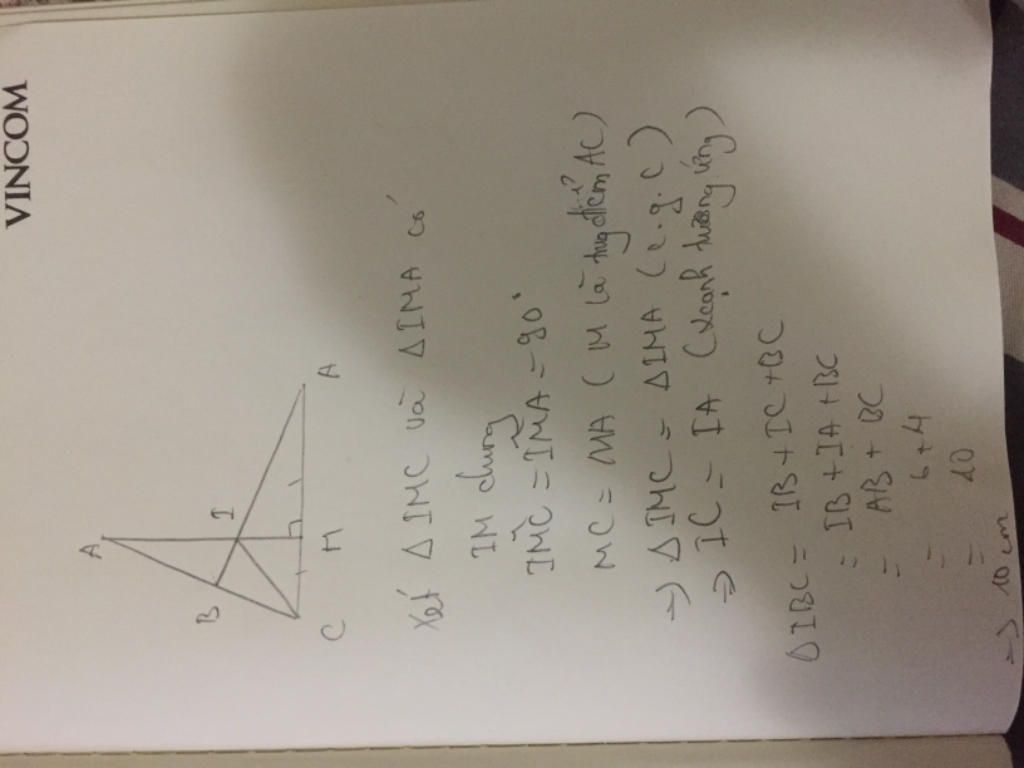 VINCOM
A
B
I
C
M
A
Xét Δ IMC và Δ IMA có
IM chung
IMC = IMA = 90°
MC = MA ( M là trung điểm AC )
=> Δ IMC = Δ IMA ( c.g.c )
=> IC = IA ( cạnh tương ứng )
Δ IBC = IB + IC + BC
= IB + IA + BC
= AB + BC
= 6 + 4
= 10
=> 10 cm